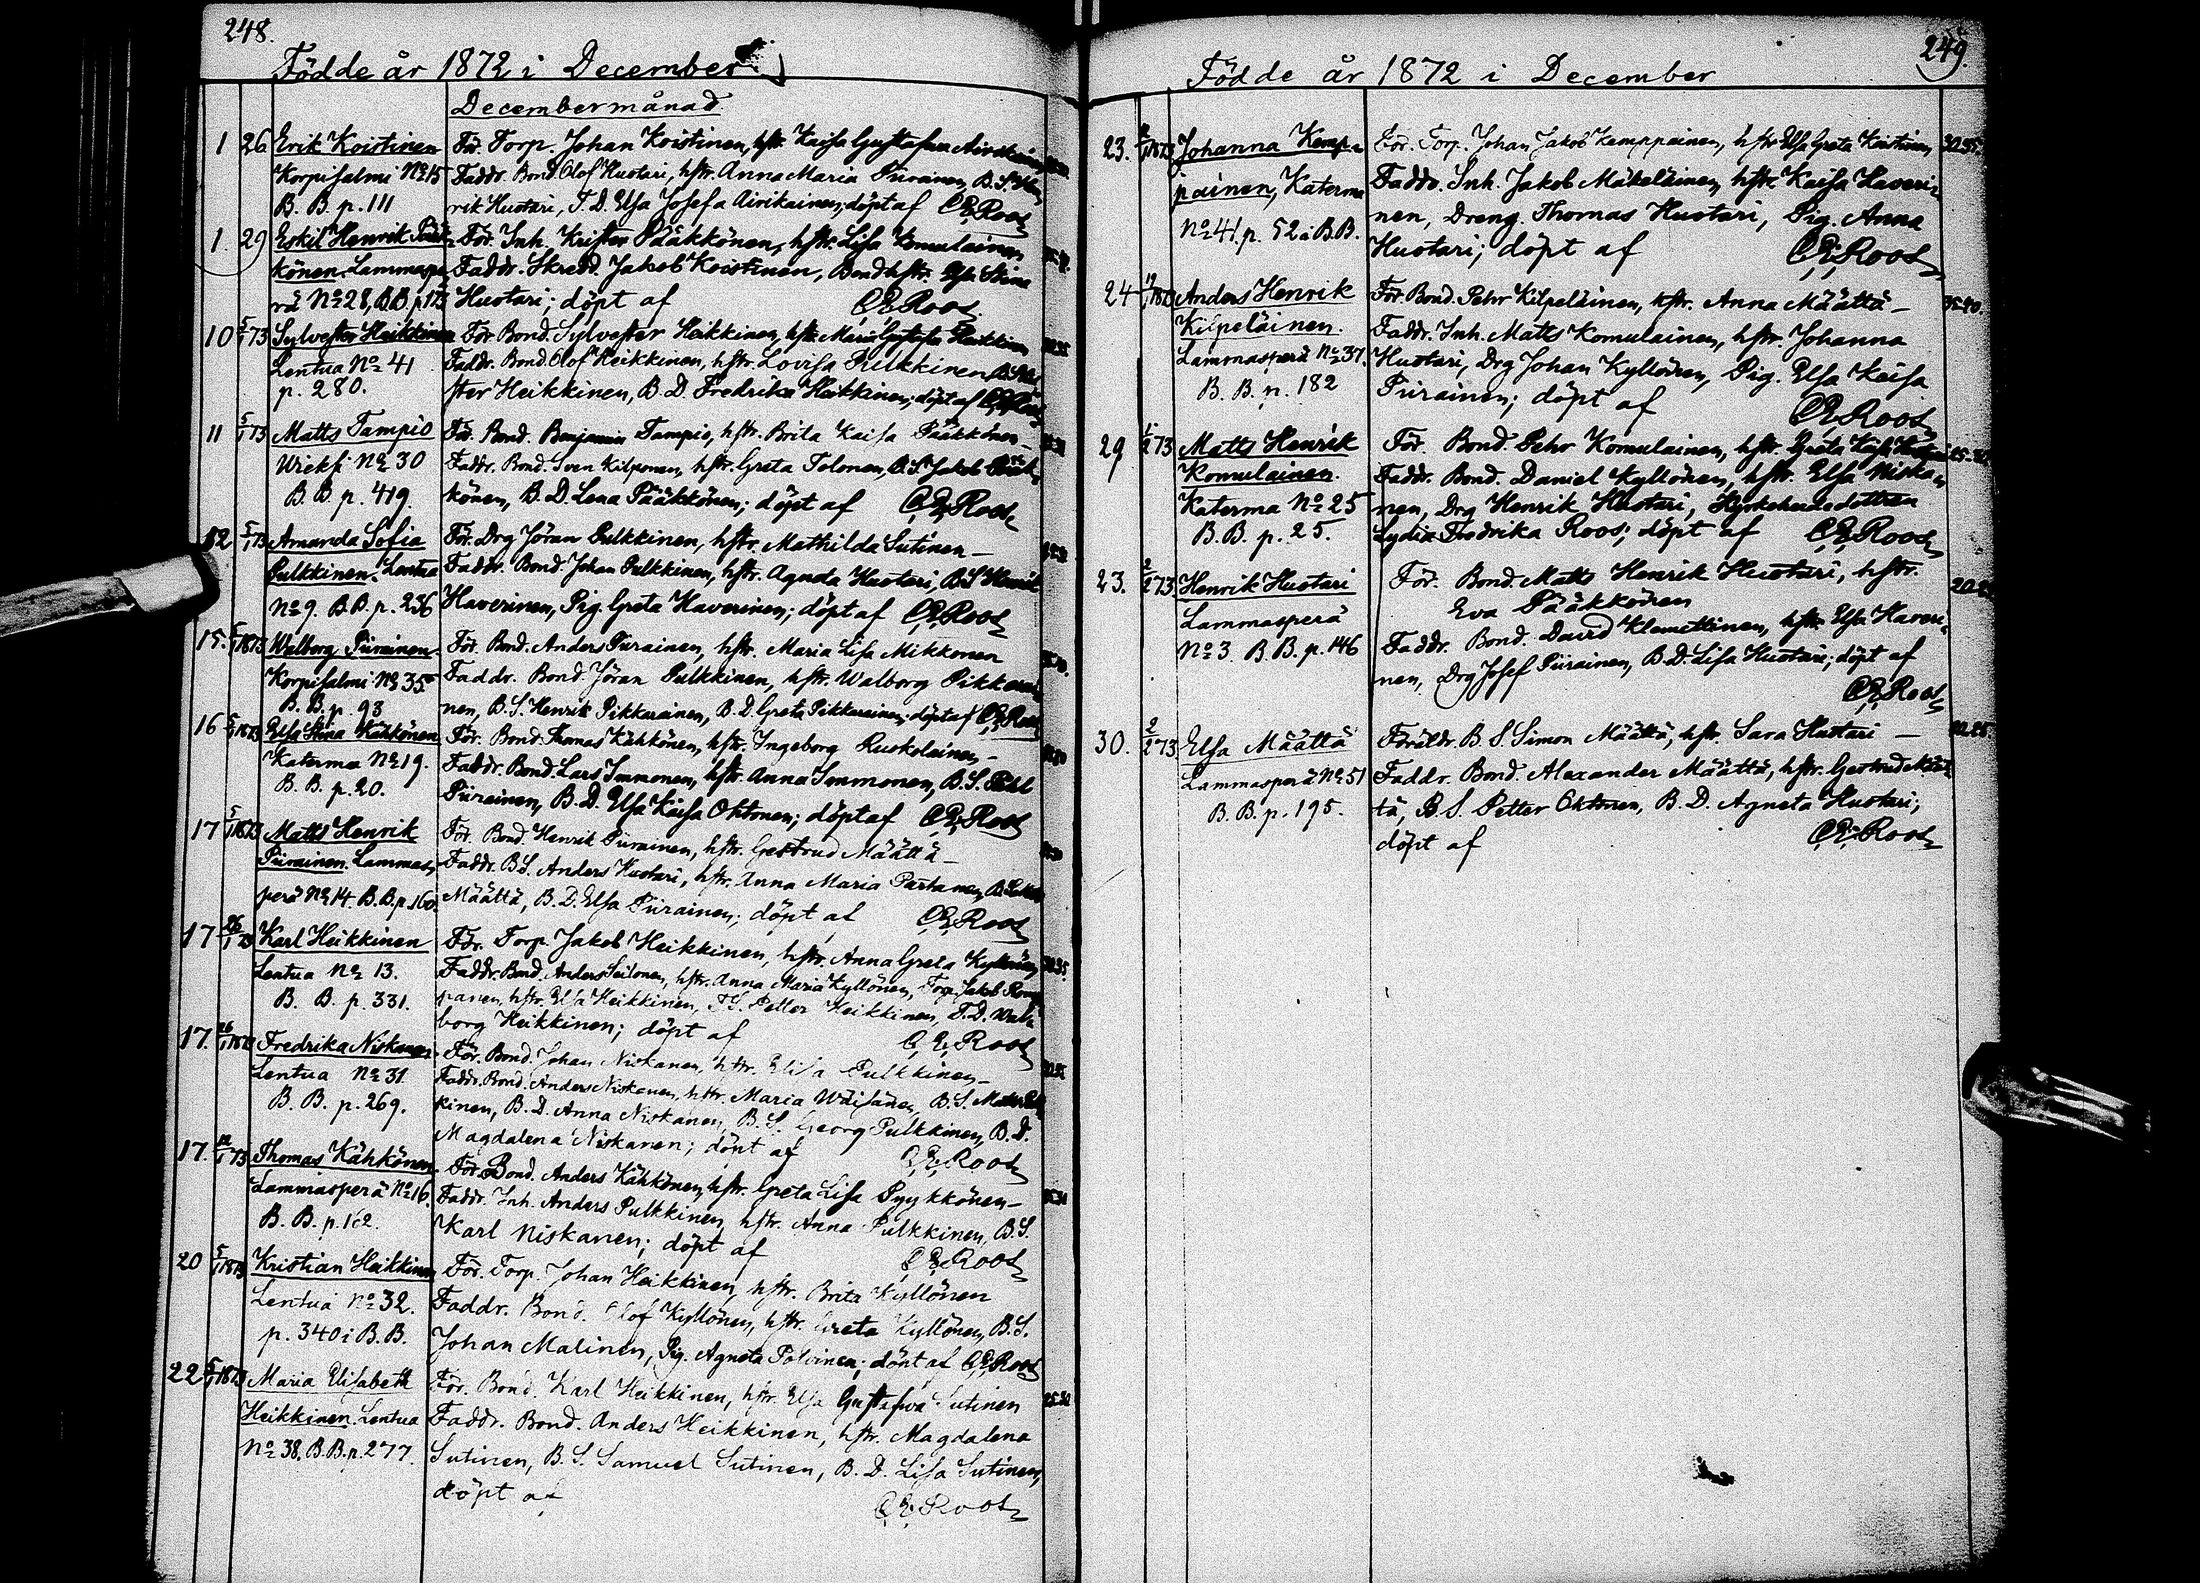 248.
Födde år 1872 i December
Decembermånad
1 26 Erik Koistinen För. Torp. Johan Koistinen, hstr. Kaisa Gustafva
Korpisalmi No 15 Faddr. Bond. Olof Huotari, hstr. Anna Maria Piirainen, B.S. Hen
B. B. p. 111 rik Huotari, T. D. Elsa Josefa Airikainen; döpt af C.E. Roos
1. 29 Eskil Henrik Pääk För. Inh. Krister Pääkkönen, hstr. Lisa Komulainen
könen. Lammaspe Faddr. Skredd. Jakob Koistinen, Bondhstr. Elsa Stina
rä No 28, B.B. p. Huotari; döpt af C.E. Roos
10 5/1 73 Sylvester Heikkinen För Bond. Sylvester Heikkinen, hstr. Maria Gustafva Heikkinen
Lentua No 41 Faddr. Bond. Olof Heikkinen, hstr. Lovisa Pulkkinen,
p. 280. ster Heikkinen, B. D. Fredrika Heikkinen; döpt af C.E. Roos
11 5/1 73 Matts Tampio För. Bond. Benjamin Tampio, hstr. Brita Kaisa Pääkkönen
Wieksi No 30 Faddr. Bond. Sven Kilponen, hstr. Greta Tolonen, B.S. Jakob Pääk
B B. p. 419. könen, B. D. Lena Pääkkönen; döpt af C.E. Roos
12 5/1 73 Amanda Sofia För. Drg Jöran Pulkkinen, hstr. Mathilda Sutinen –
Pulkkinen. Lentua Faddr. Bond. Johan Pulkkinen, hstr. Agneta Huotari, B.S. Henrik
No 9. B.B. p. 236 Haverinen, Pig. Greta Haverinen; döpt af C.E. Roos
15. 5/1 1873 Walborg Piirainen. För. Bond. Anders Piirainen, hstr. Maria Lisa Mikkonen
Korpisalmi No 35. Faddr. Bond. Jöran Pulkkinen, hstr. Walborg Pikkarai
B. B. p. 93 nen, B. S. Henrik Pikkarainen, B. D. Greta Pikkarainen; döpt af C.E. Roos
16 5/1 1873 Elsa Stina Kähkönen För. Bond. Thomas Kähkönen, hstr. Ingeborg Ruskolainen –
Katerma No 19. Faddr. Bond. Lars Immonen, hstr. Anna Immonen, B. S.
B. B. p. 20. Piirainen, B. D. Elsa Kaisa Oktonen; döpt af C.E. Roos
17 5/1 1873 Matts Henrik För. Bond. Henrik Piirainen, hstr. Gertrud Määttä –
Piirainen. Lammas Faddr. B.S. Anders Huotari, hstr. Anna Maria Partanen,
perä No 14. B.B. p. 160. Määttä, B. D. Elsa Piirainen; döpt af C.E. Roos
17 26/1 73 Karl Heikkinen För. Torp. Jakob Heikkinen, hstr. Anna Greta Kyllönen
Lentua No 13. Faddr. Bond. Anders Seilonen, hstr. Anna Maria Kyllönen, Torp. Jakob
B. B. p. 331. panen, hstr. Elsa Heikkinen, T.S. Petter Heikkinen, T.D. Wal
borg Heikkinen; döpt af C.E. Roos
17. 26/1 1873 Fredrika Niskanen För. Bond. Johan Niskanen, hstr. Elisa Pulkkinen –
Lentua No 31. Faddr. Bond. Anders Niskanen, hstr. Maria Wäisänen, B. S. Matts Pulk
B. B. p. 269. kinen, B. D. Anna Niskanen, B. S. Georg Pulkkinen, B. D.
Magdalena Niskanen; döpt af C.E. Roos
17. 12/1 73 Thomas Kähkönen För. Bond. Anders Kähkönen, hstr. Greta Lisa Pyykkönen –
Lammasperä No 16. Faddr. Inh. Anders Pulkkinen, hstr. Anna Pulkkinen, B.S.
B. B. p. 162. Karl Niskanen; döpt af C.E. Roos
20 5/1 1873 Kristian Heikkinen För. Torp. Johan Heikkinen, hstr. Brita Kyllönen
Lentua No 32. Faddr. Bond. Olof Kyllönen, hstr. Greta Kyllönen, B. S.
p. 340 i B. B. Johan Malinen, Pig. Agneta Polvinen; döpt af C.E. Roos
22 5/1 1873 Maria Elisabeth För. Bond. Karl Heikkinen, hstr. Elsa Gustafva Sutinen 25.30
Heikkinen. Lentua Faddr. Bond. Anders Heikkinen, hstr. Magdalena
No 38. B.B. p. 277. Sutinen, B. S. Samuel Sutinen, B. D. Lisa Sutinen,
döpt af C.E. Roos
249.
Födde år 1872 i December
23. 1873 Johanna Kemp= För. Torp. Johan Jakob Kemppainen, hstr Elsa Greta Koistinen 30.35.
painen, Katerma Faddr. Inh. Jakob Mäkeläinen, hstr. Kaisa Haveri=
No 41. p. 52 i B.B. nen, Dreng. Thomas Huotari, Pig. Anna
Huotari; döpt af C.E. Roos
24 1873 Anders Henrik För. Bond. Pehr Kilpeläinen, hstr. Anna Määttä – 35.40.
Kilpeläinen. Faddr. Inh. Matts Komulainen, hstr. Johanna
Lammasperä No 37. Huotari, Drg Johan Kyllönen, Pig. Elsa Kaisa
B. B. p. 182 Piirainen; döpt af C.E. Roos
29 73 Matts Henrik För. Bond. Pehr Komulainen, hstr. Greta Kaisa
Komulainen. Faddr. Bond. Daniel Kyllönen, hstr. Elsa Niska=
Katerma No 25 nen, Drg Henrik Huotari, Kyrkoherdedottren
B. B. p. 25. Lydia Fredrika Roos; döpt af C.E. Roos
23. 2/2 73 Henrik Huotari För. Bond. Matts Henrik Huotari, hstr.
Lammasperä Eva Pääkkönen
No 3. B. B. p. 146 Faddr. Bond. David Klemettinen, hstr. Elsa Haveri=
nen, Drg Josef Piirainen, B.D. Lisa Huotari; döpt af
C.E. Roos
30. 2/2 73 Elsa Määttä Föräldr. B. S. Simon Määttä, hstr. Sara Huotari –
Lammasperä No 51 Faddr. Bond. Alexander Määttä, hstr. Gertrud Määt
B. B. p. 195. tä, B. S. Petter Oktonen, B. D. Agneta Huotari;
döpt af C.E. Roos